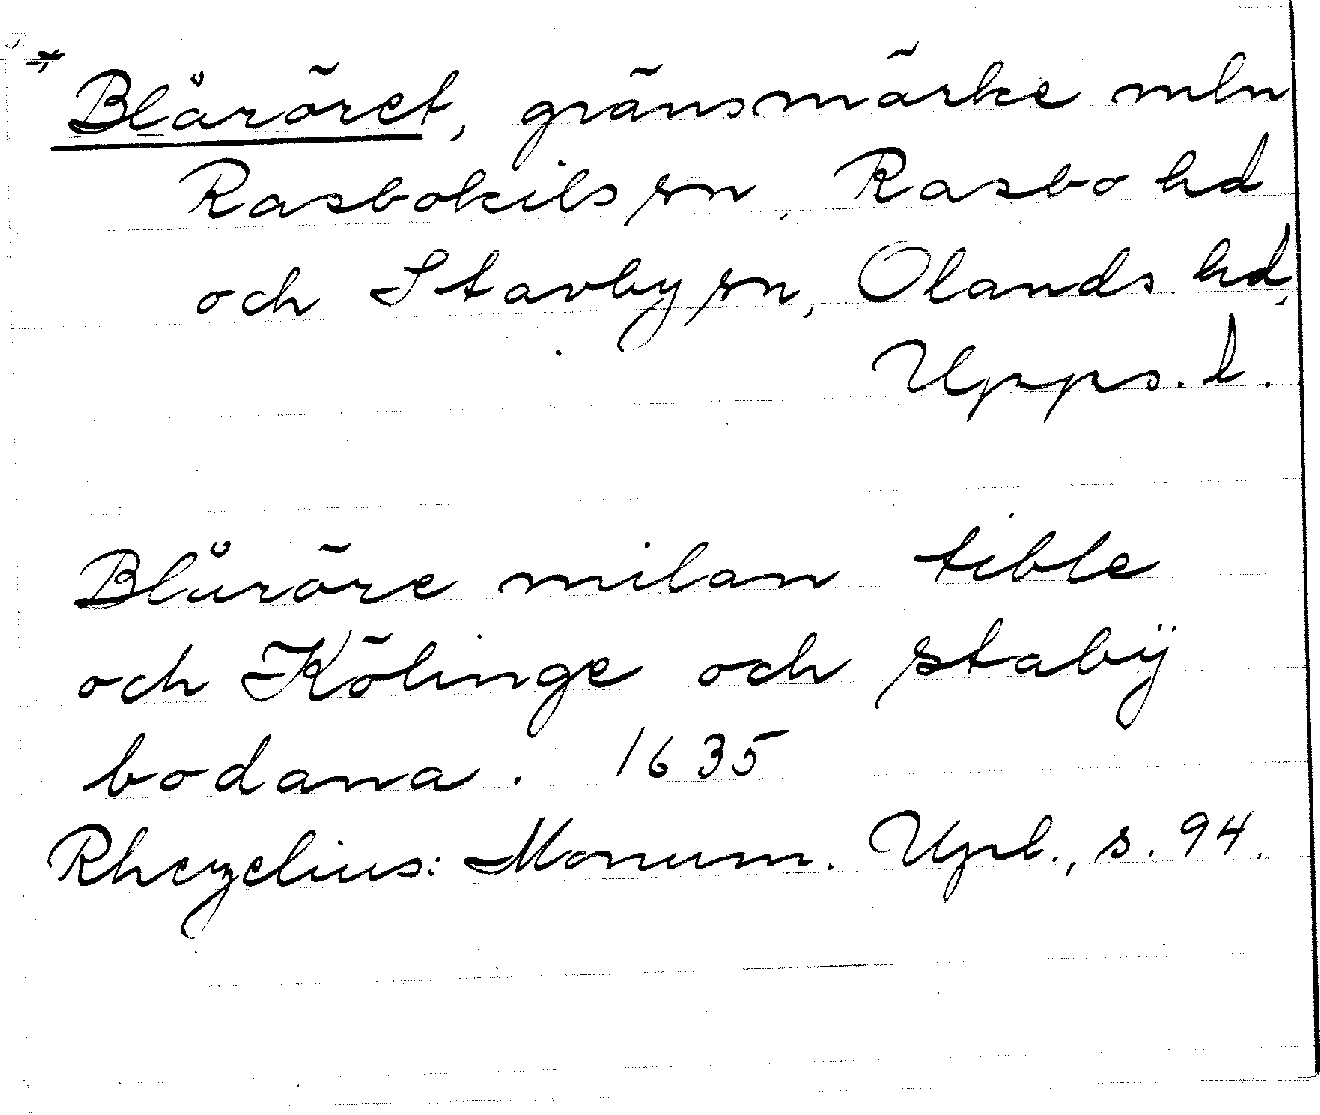 * Blåröret, gränsmärke mln
Rasbokils sn, Rasbo hd
och Stavby sn, Olands hd,
Upps. l.
Blåröre milan tible
och Kölinge och stabÿ
bodana. 1635
Rhezelius: Monum. Upl., s. 94.